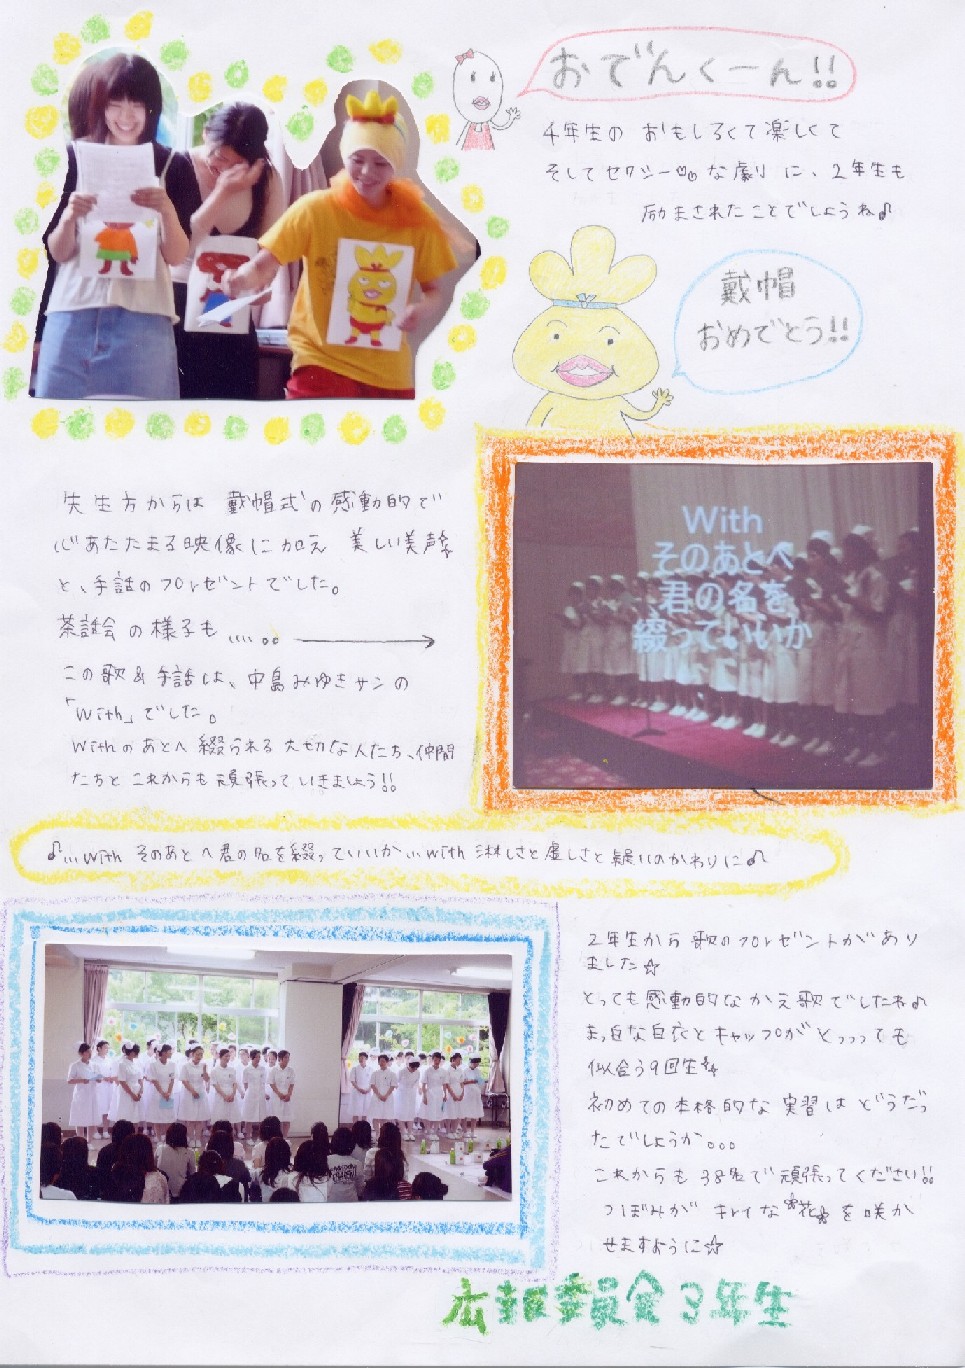 おでんくーん!!
4年生の おもしろくて楽しくて
そしてセクシー♡♡な劇りに、2年生も
励まされたことでしょうね♪
戴帽
おめでとう!!
先生方からは 戴帽式の感動的で
心あたたまる映像に加え 美しい美声
と、手話のプレゼントでした。
茶話会の様子も .... 。。
この歌&手話は、中島みゆきサンの
「With」でした。
Withのあとへ綴られる 大切な人たち、仲間
たちと これからも頑張っていきましょう!!
With
そのあとへ
君の名を
綴っていいか
♪...With そのあとへ君の名を綴っていいか...With 淋しさと虚しさと疑いのかわりに♪
2年生から歌のプレゼントがあり
ました☆
とっても感動的なかえ歌でしたね♪
まっ白な白衣とキャップがとっっっても
似合う9回生
初めての本格的な実習はどうだっ
たでしょうか。。。
これからも38名で頑張ってください!!
つぼみが キレイな花を咲か
せますように☆
広報委員会3年生